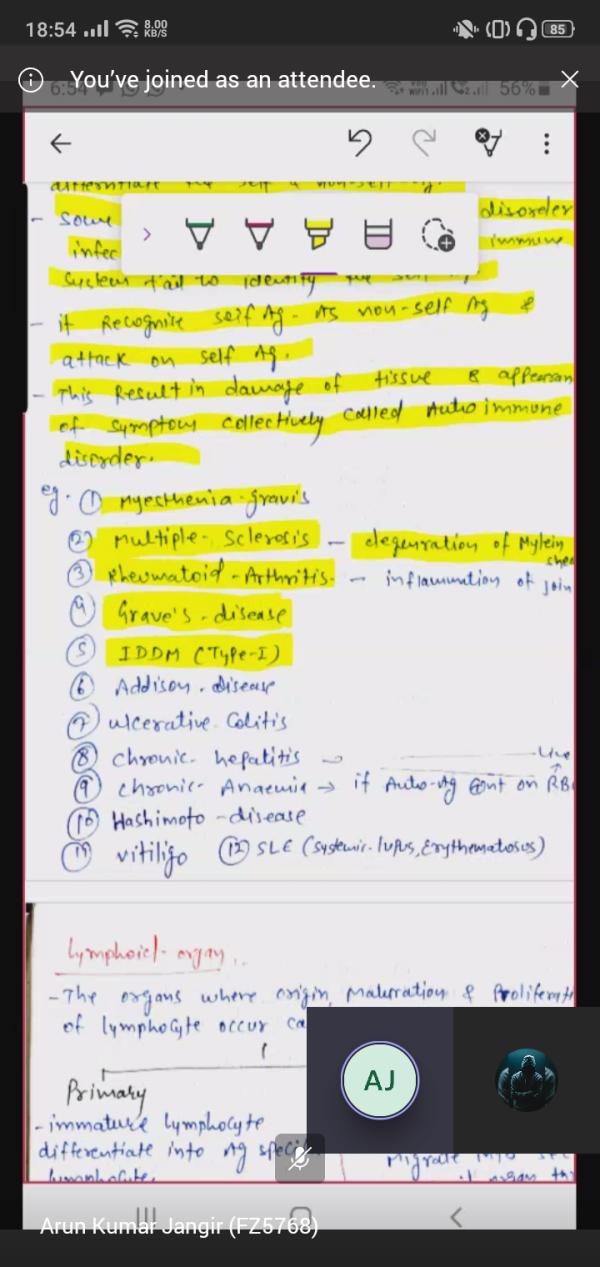 18:54 8.00 KB/S 85
You've joined as an attendee.
6:54 56%
differntiate the self & non-self Ag.
- Some disorder
infec immune
System fail to identify the self
- it Recognite self Ag. As non-self Ag &
attack on self Ag.
- This Result in damage of tissue & appearan
of symptoms collectively called Auto immune
disorder.
eg. ① Myesthenia-gravis
② Multiple-Sclerosis - degenration of Mylein
shea
③ Rheumatoid-Arthritis - inflammation of join
④ Grave's-disease
⑤ IDDM (Type-I)
⑥ Addison.disease
⑦ ulcerative-Colitis
⑧ chronic-hepatitis → Live
⑨ chronic-Anaemia → if Auto-Ag on RB
⑩ Hashimoto-disease
⑪ vitiligo ⑫ SLE (Systemic-lupus, Erythematosus)
Lymphoid-organ
- The organs where origin, Maturation & Proliferat
of lymphocyte occur ca
Primary
- immature lymphocyte
differentiate into Ag speci
lymphocyte.
Migrate into sec
organ
AJ
Arun Kumar Jangir (FZ5768)